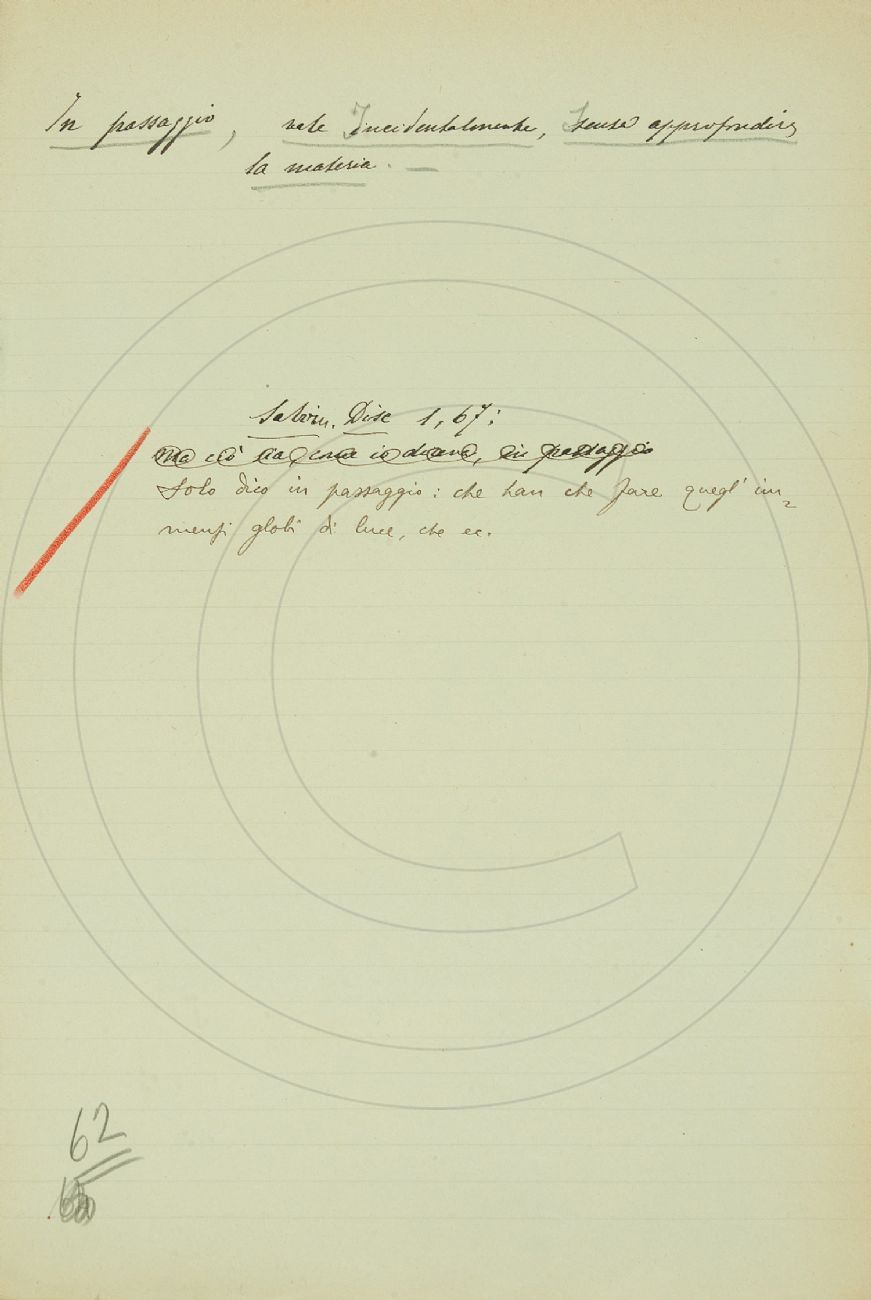 In passaggio, vale Incidentalmente, Senza approfondire
la materia. —
Salvin. Disc 1, 67:
Ma ciò sia, come io diceva, in passaggio
Solo dico in passaggio: che han che fare quegl' im-
mensi globi di luce, che ec.
62